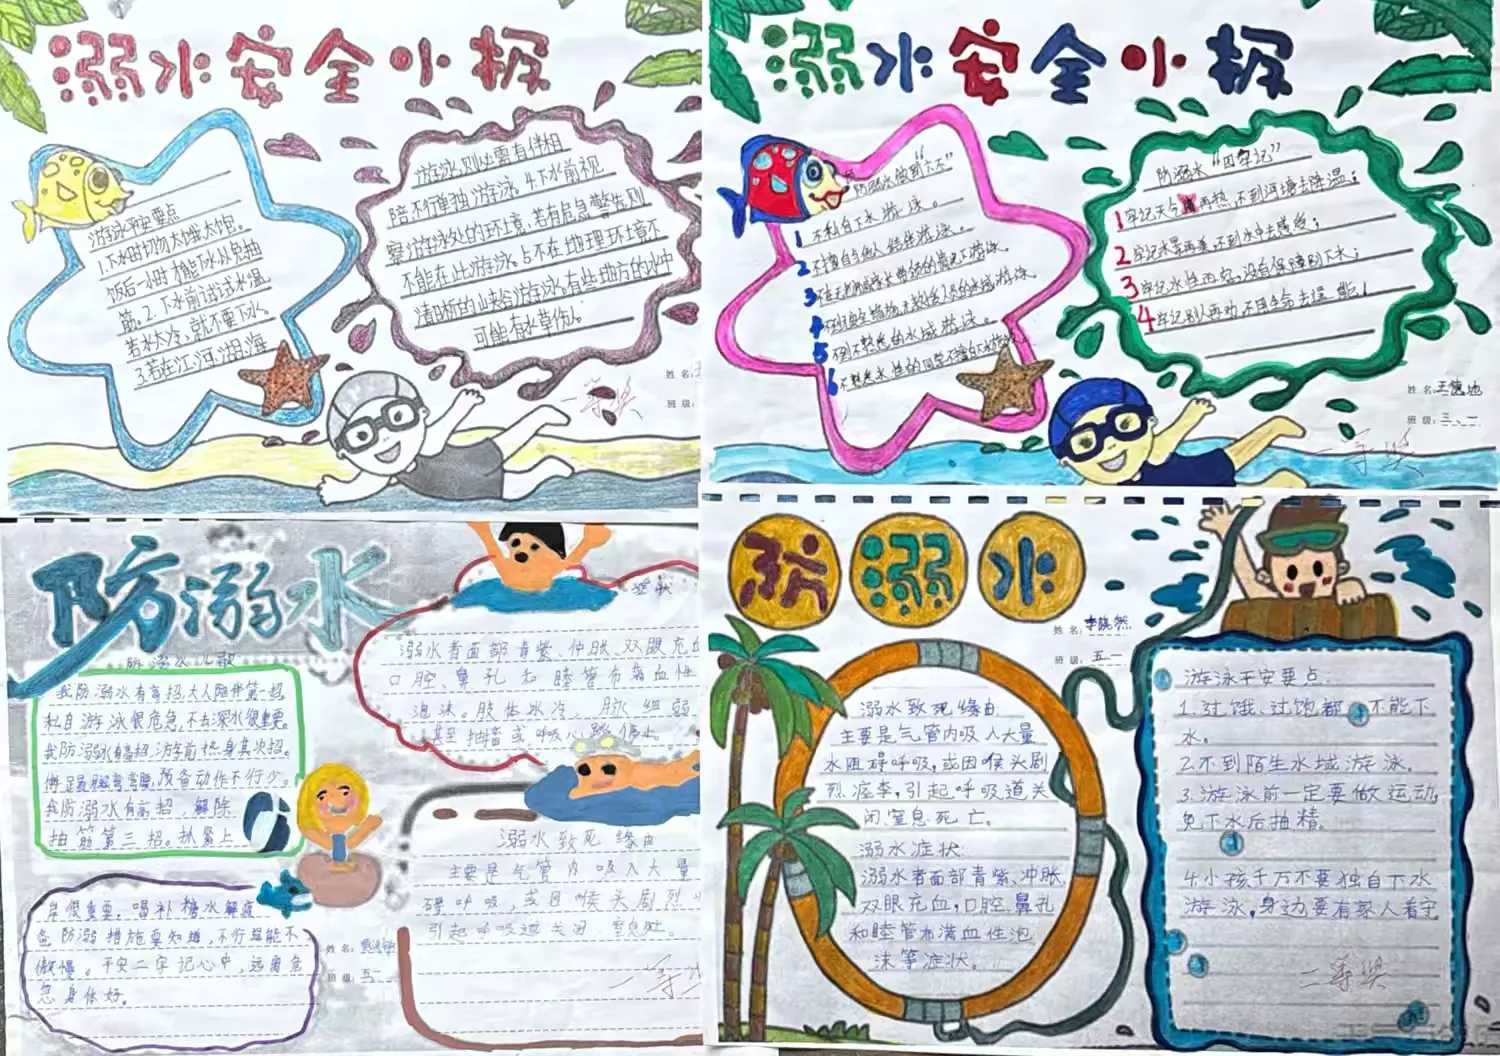 溺水安全小报
游泳平安要点
1.下水时切勿太饿、太饱。
饭后一小时才能下水,以免抽
筋。2.下水前试试水温,
若水太冷,就不要下水。
3.若在江、河、湖、海
游泳,则必需有伴相
陪不行单独游泳。4.下水前视
察游泳处的环境,若有危急警告,则
不能在此游泳。5.不在地理环境不
清晰的山峡游泳。有些地方的水中
可能有水草伤人。
姓名:
班级:
一等奖
溺水安全小报
防溺水做到“六不”
1 不私自下水游泳。
2 不擅自与他人结伴游泳。
3
4
5 不到不熟悉的水域游泳。
6
防溺水“四牢记”
1 牢记天今再热,不到河塘去降温;
2 牢记水景再美,不到水中去
3 牢记水性再空,没有保障别下水;
4 牢记别人再劝,不用生命去逞能!
姓名:王
班级:三、二
一等奖
防溺水
我防溺水有高招,大人陪伴第一招
私自游泳很危急,不去深水很重要。
我防溺水有高招,游前热身其次招。
预备动作不行少。
我防溺水有高招,解除
抽筋第三招。抓紧上
暑假重要,喝补糖水解疲
怠,防溺措施要知道,不行逞能不
傲慢。平安二字记心中,远离危
急身体好。
姓名:
班级:五一
症状
溺水者面部青紫、仲胀、双眼充血
口腔、鼻孔和睦管布满血性
泡沫。肢体冰冷,脉细弱
甚至抽搐或呼吸心跳停止
溺水致死缘由
主要是气管内吸入大量
碍呼吸,或因喉头剧烈
引起呼吸道关闭、窒息死。
一等
防溺水
姓名:李晓然
班级:五一
溺水致死缘由
主要是气管内吸入大量
水阻碍呼吸,或因喉头剧
烈痉挛,引起呼吸道关
闭窒息死亡。
溺水症状:
溺水者面部青紫、冲胀,
双眼充血,口腔,鼻孔
和睦管布满血性泡
沫等症状。
游泳平安要点:
1.过饿、过饱都不能下
水。
2.不到陌生水域游泳。
3.游泳前一定要做运动,
免下水后抽精。
4.小孩千万不要独自下水
游泳,身边要有家人看守
二等奖